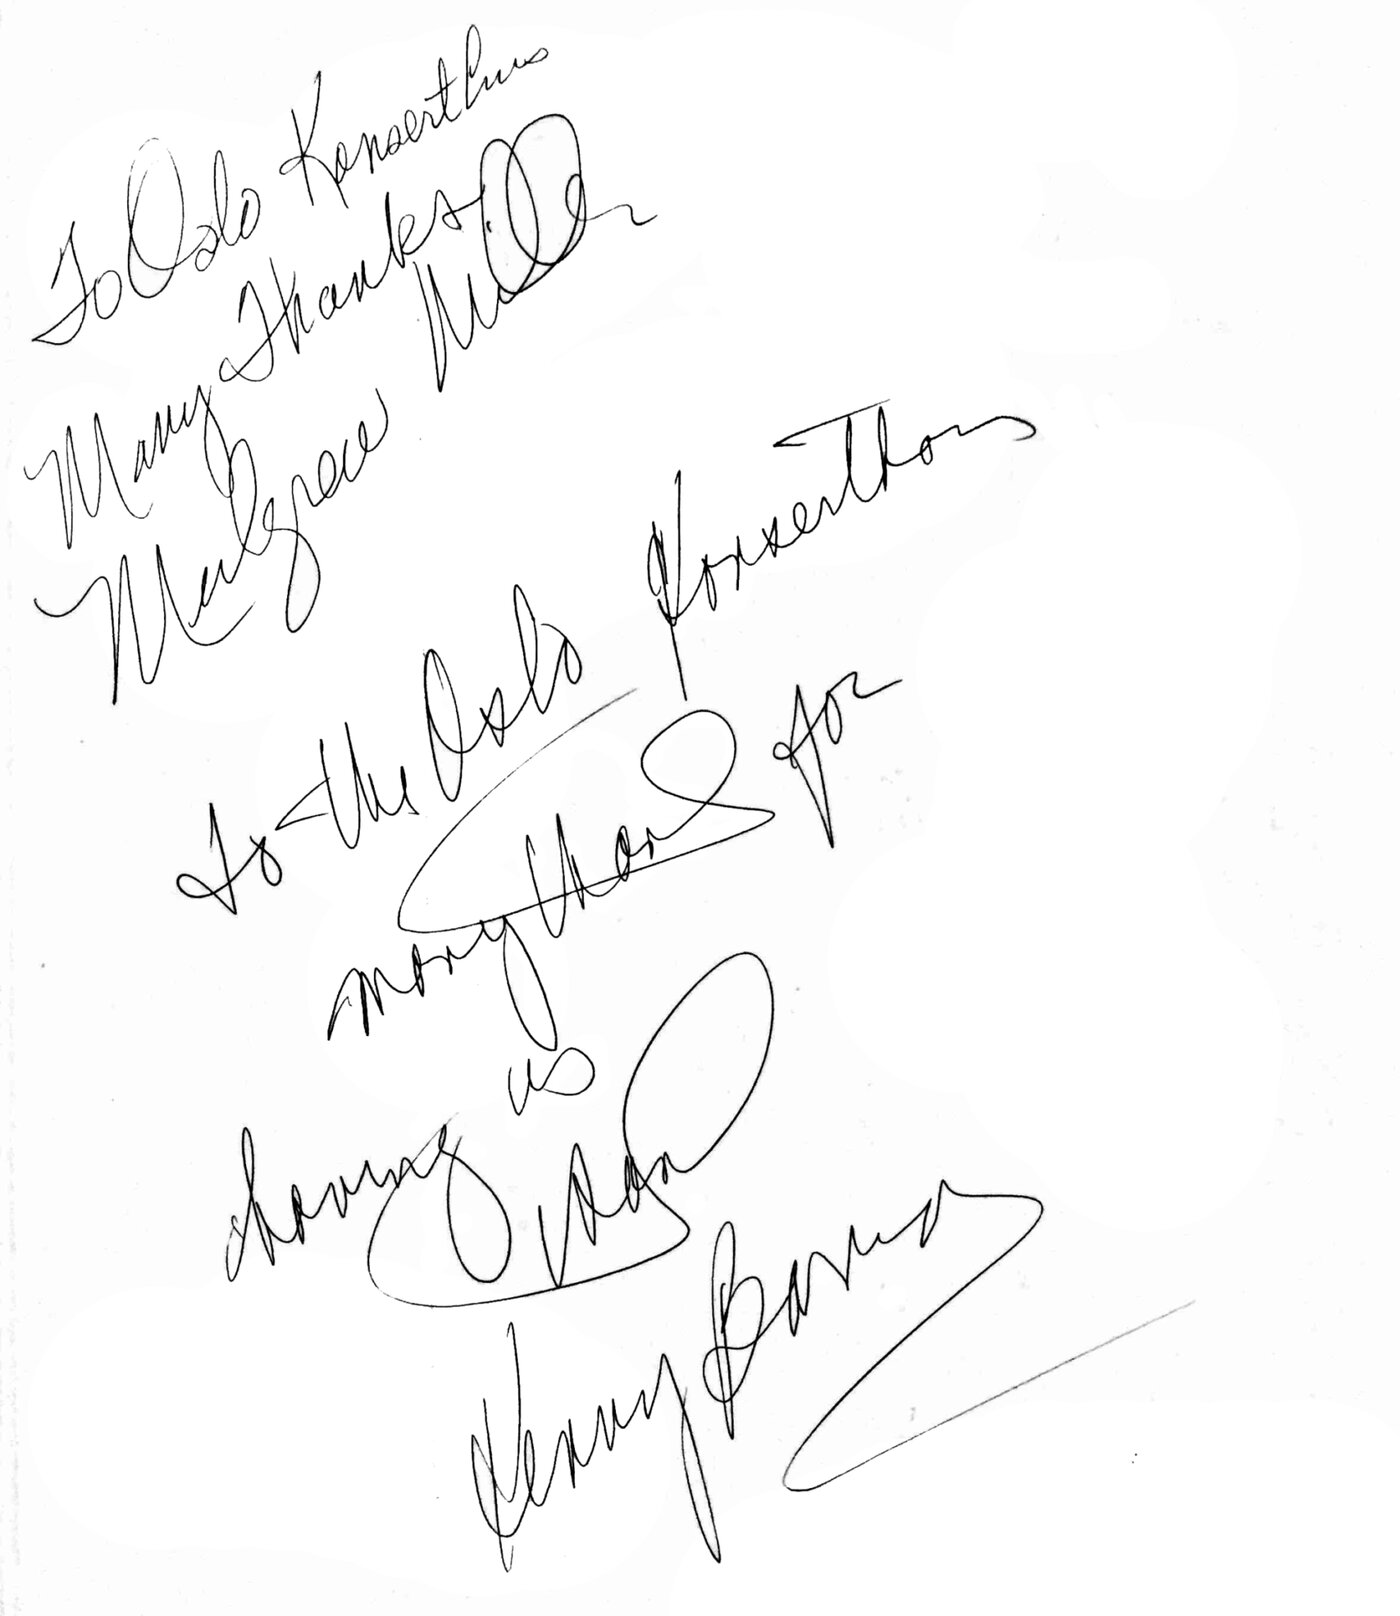 To Oslo Konserthus
Many Thanks
Mulgrew Miller
To The Oslo Konserthous
many thanks for
having us
Again
Kenny Barron